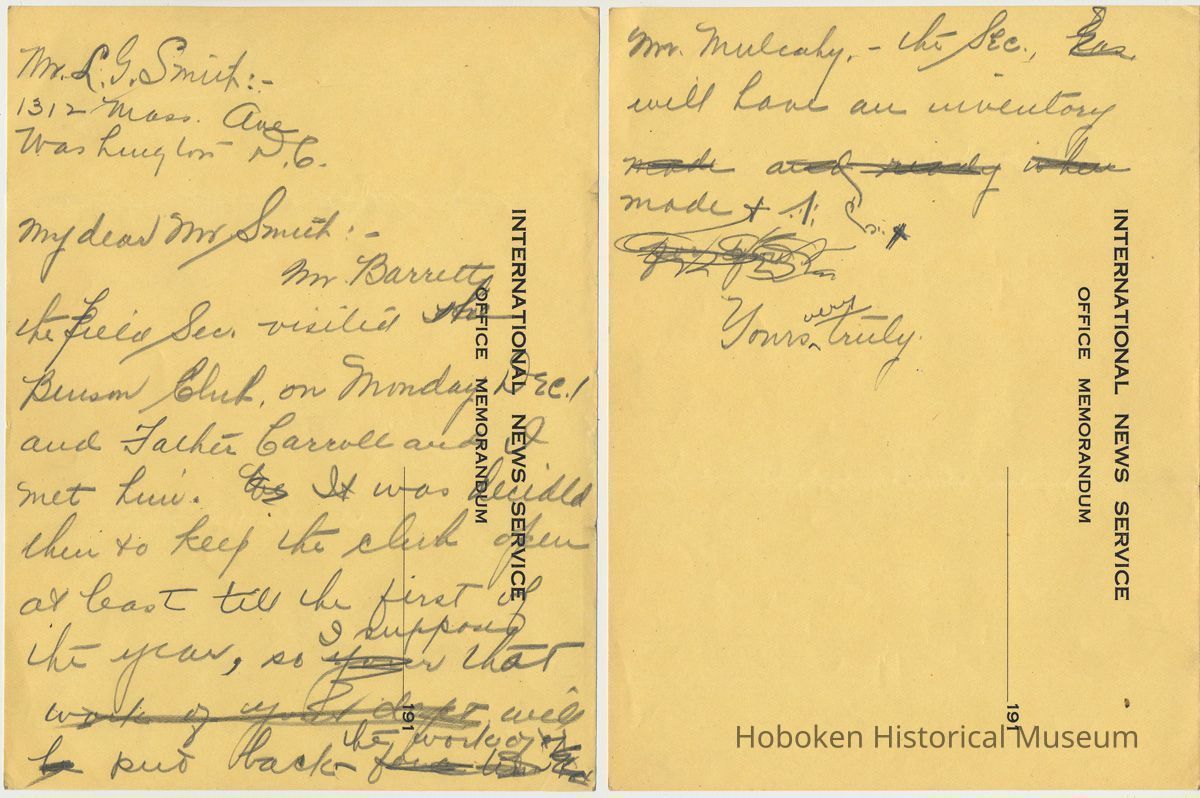 Mr. L. G. Smith:-
1312 Mass. Ave
Washington D.C.
My dear Mr Smith:-
Mr. Barrett
the Field Sec. visited the
Benson Club, on Monday, Dec. 1
and Father Carroll and I
met him. It was decided
then to keep the club open
at least till the first of
the year, so I suppose that
work of your dept will
be put back the work of
INTERNATIONAL NEWS SERVICE
OFFICE MEMORANDUM
191
Mr. Mulcahy. - the Sec., has
will have an inventory
made and ready when
made +
Yours very truly.
INTERNATIONAL NEWS SERVICE
OFFICE MEMORANDUM
191
Hoboken Historical Museum